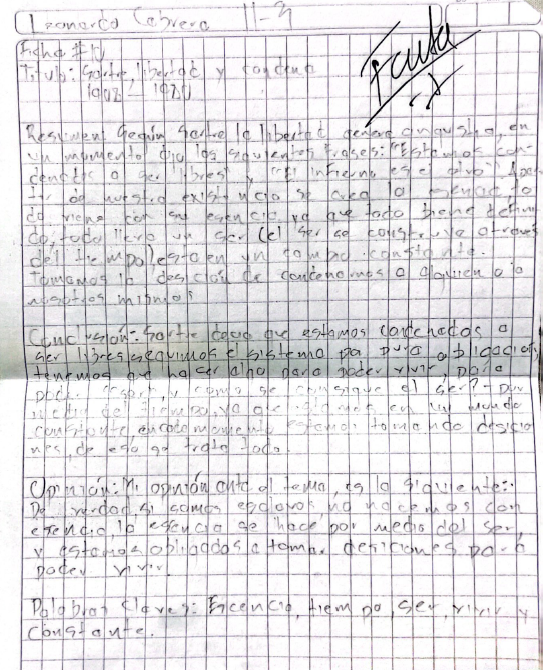 Leonardo Cabrera 11-3
Ficha #10
Titulo: Sartre, libertad y condena
1905 / 1980
Falta
Resumen: Según Sartre la libertad genera angustia, en
un momento dijo las siguientes frases: "Estamos con-
denados a ser libres" y "El infierno es el otro" Apar-
tir de nuestra existencia se crea la esencia, to
do viene con su esencia, ya que todo biene defini
do, todo lleva un ser (el ser se construye atraves
del tiempo) esta en un cambio constante.
Tomamos la desición de condenarnos a alguien o a
nosotros mismos
Conclusión: Sartre decia que estamos condenados a
ser libres, seguimos el sistema por pura obligación,
tenemos que hacer algo para poder vivir, para
poder "ser", y como se consigue el ser? Por
medio del tiempo, ya que en un mundo
constante, en cada momento estamos tomando desicio
nes, de eso se trata todo.
Opinión: Mi opinión ante el tema, es la siguiente:
De verdad, si somos esclavos, no nacemos con
esencia, la esencia se hace por medio del ser,
y estamos obligados a tomar desiciones para
poder vivir.
Palabras Claves: Escencia, tiempo, ser, vivir y
constante.